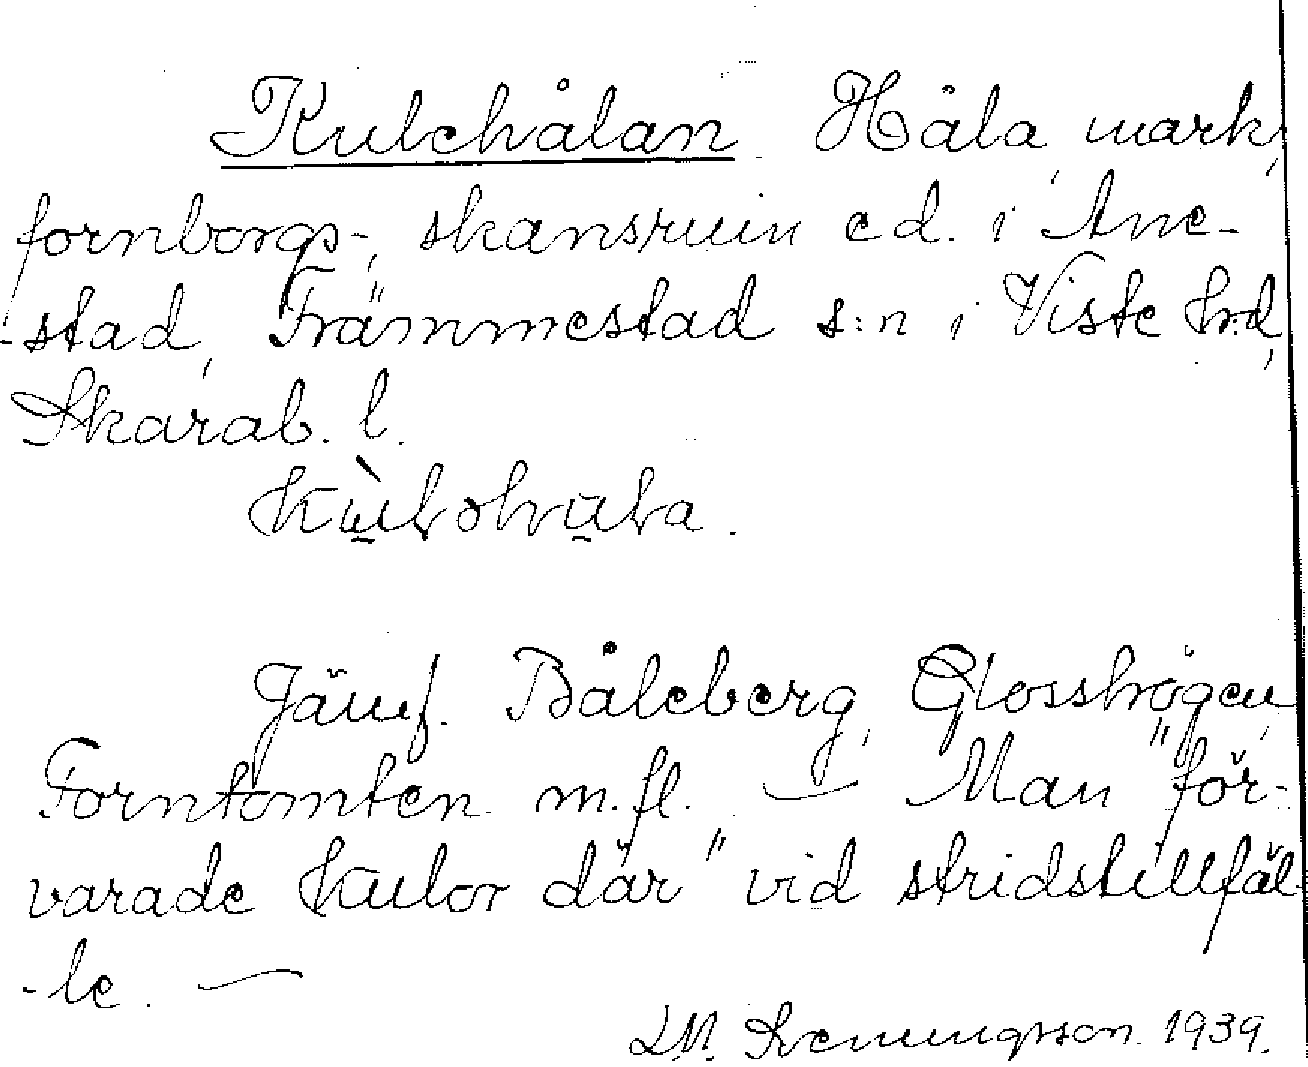 Kulehålan Håla, mark,
fornborgs-, skansruin e d. i Ane-
-stad, Främmestad s:n i Viste hrd,
Skarab. l.
Jämf. Båleberg, Glosshögen,
Forntomten m.fl. — Man "för-
varade kulor där" vid stridstillfäl-
-le. —
LM. Svenungsson. 1939.